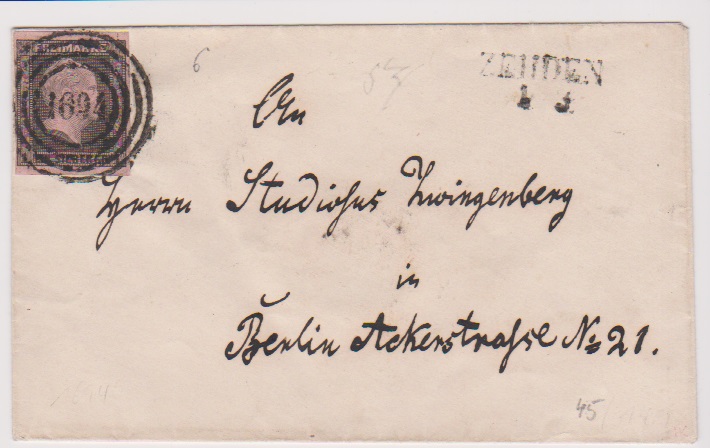 FREIMARKE
1694
6
ZEHDEN
1 3
An
Herrn Studiosus Zwingenberg
in
Berlin Ackerstrasse No 21.
45